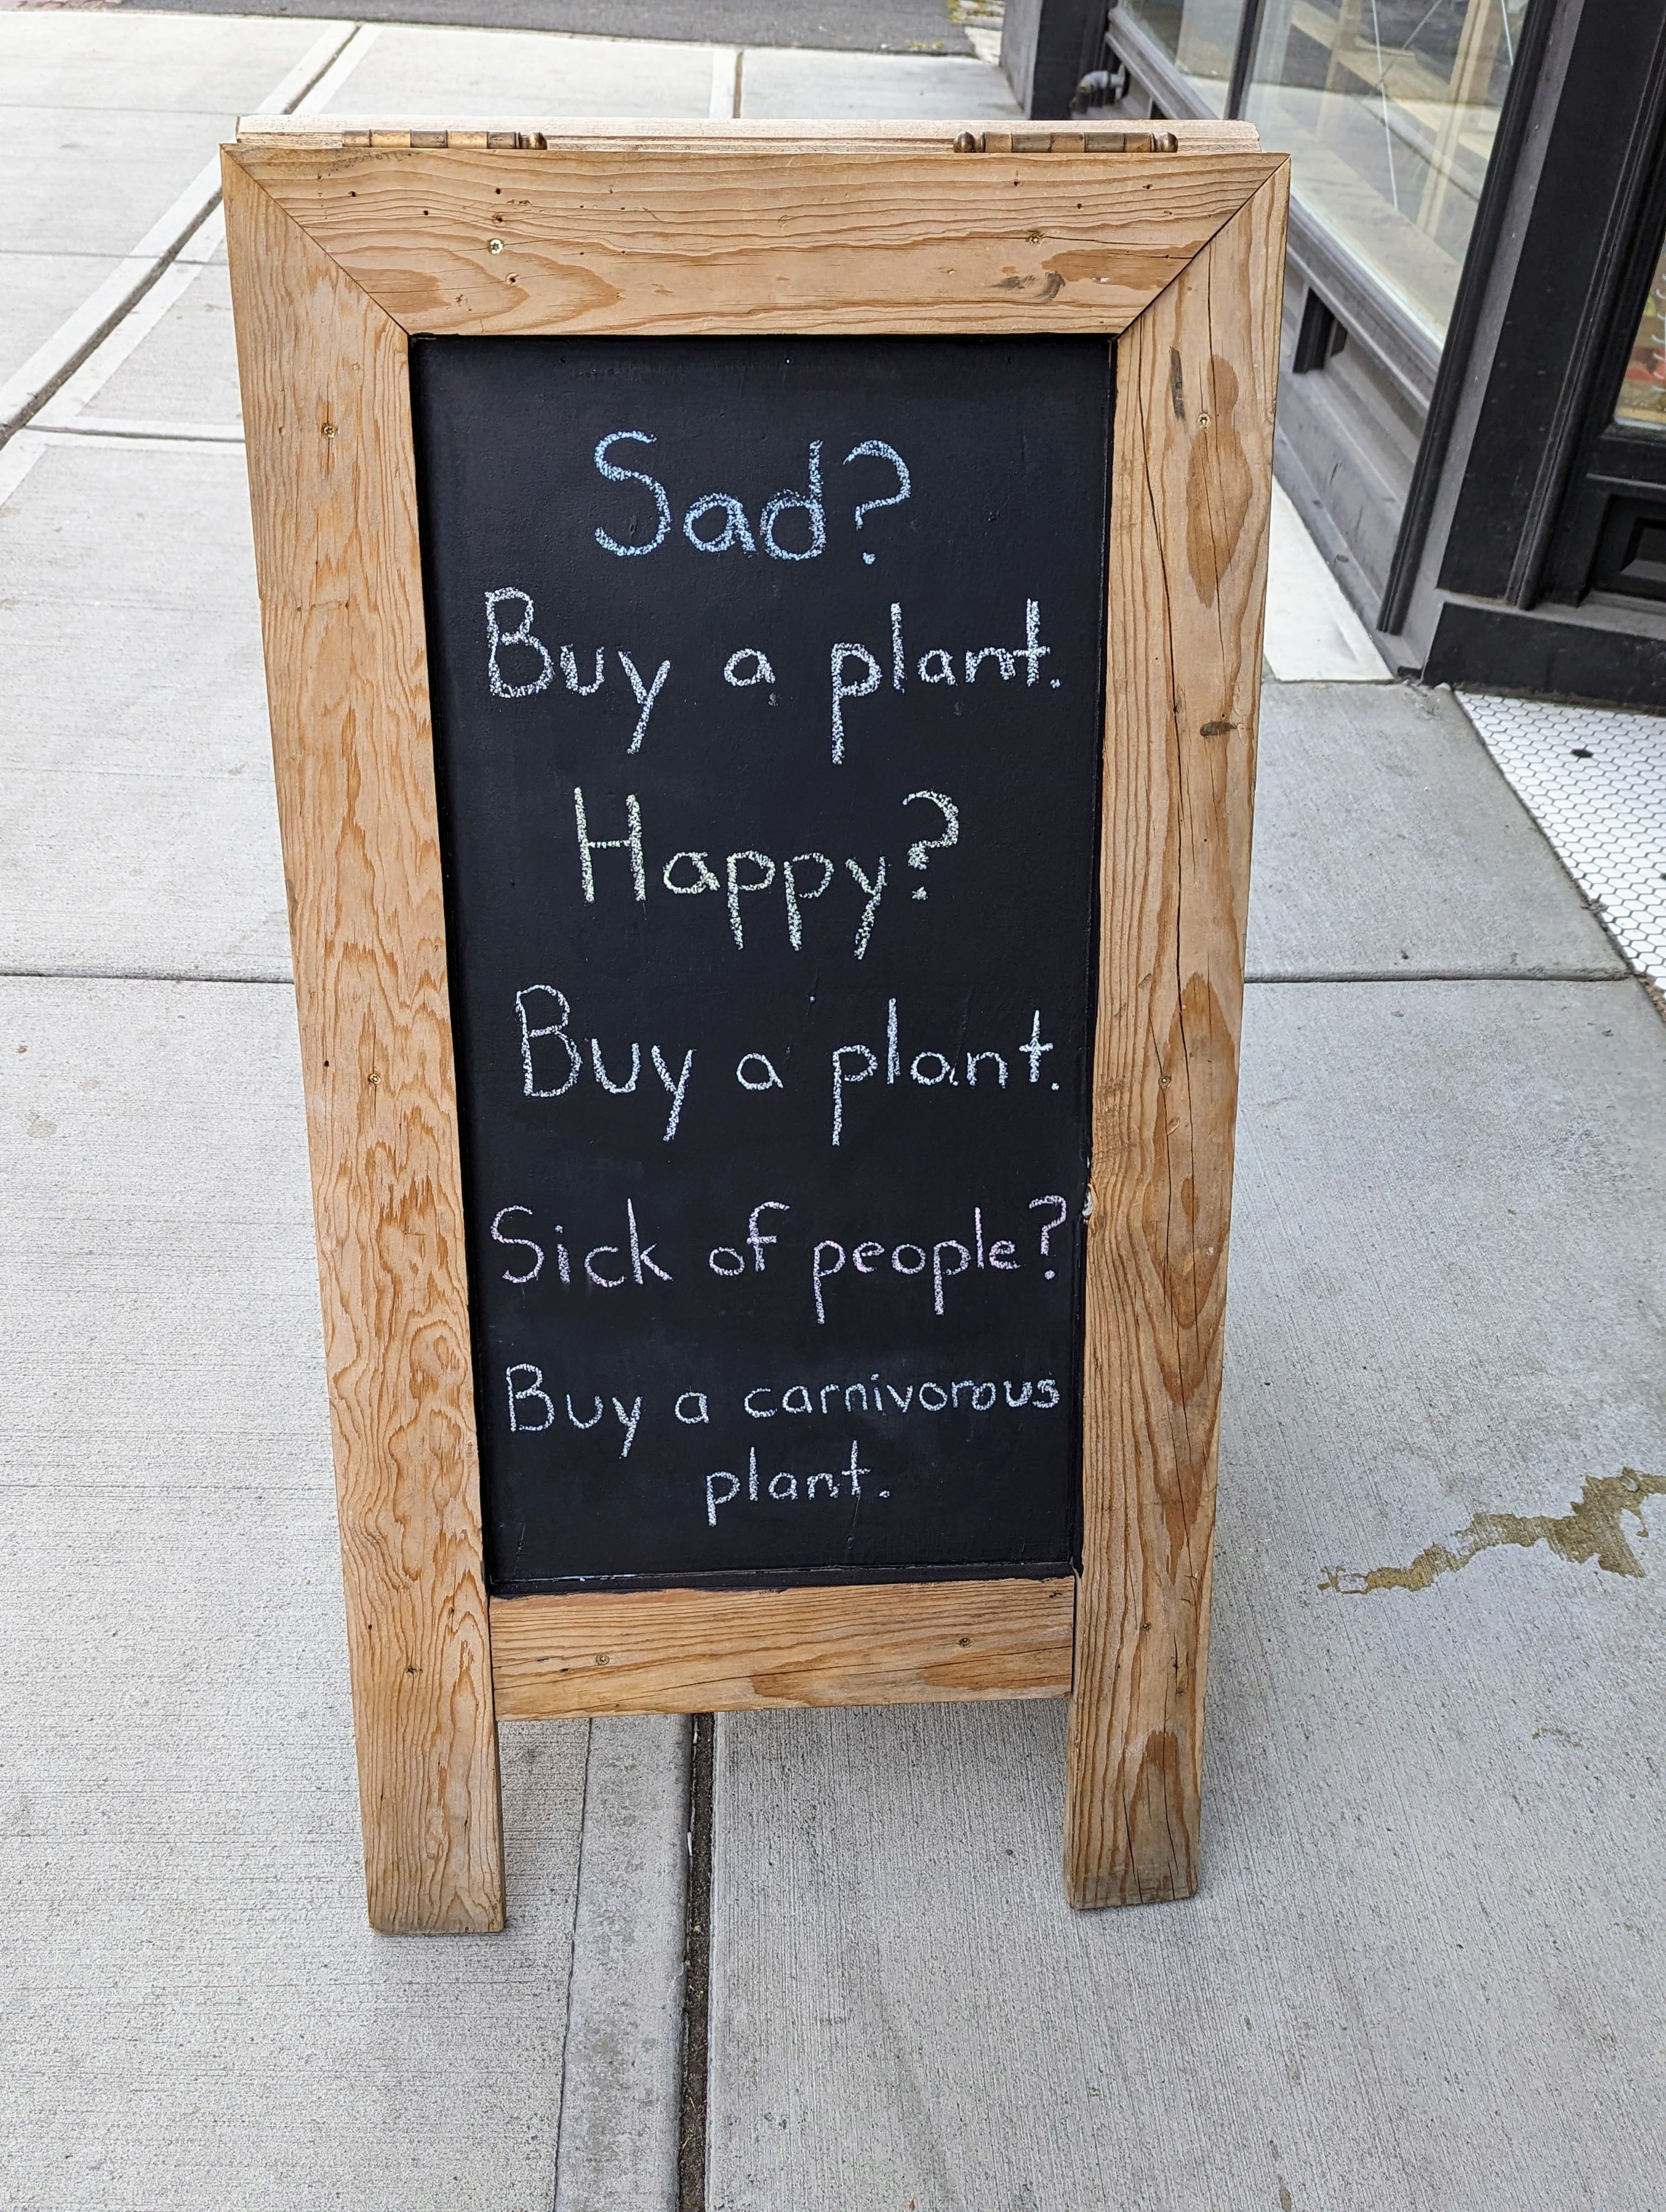 Sad?
Buy a plant.
Happy?
Buy a plant.
Sick of people?
Buy a carnivorous
plant.